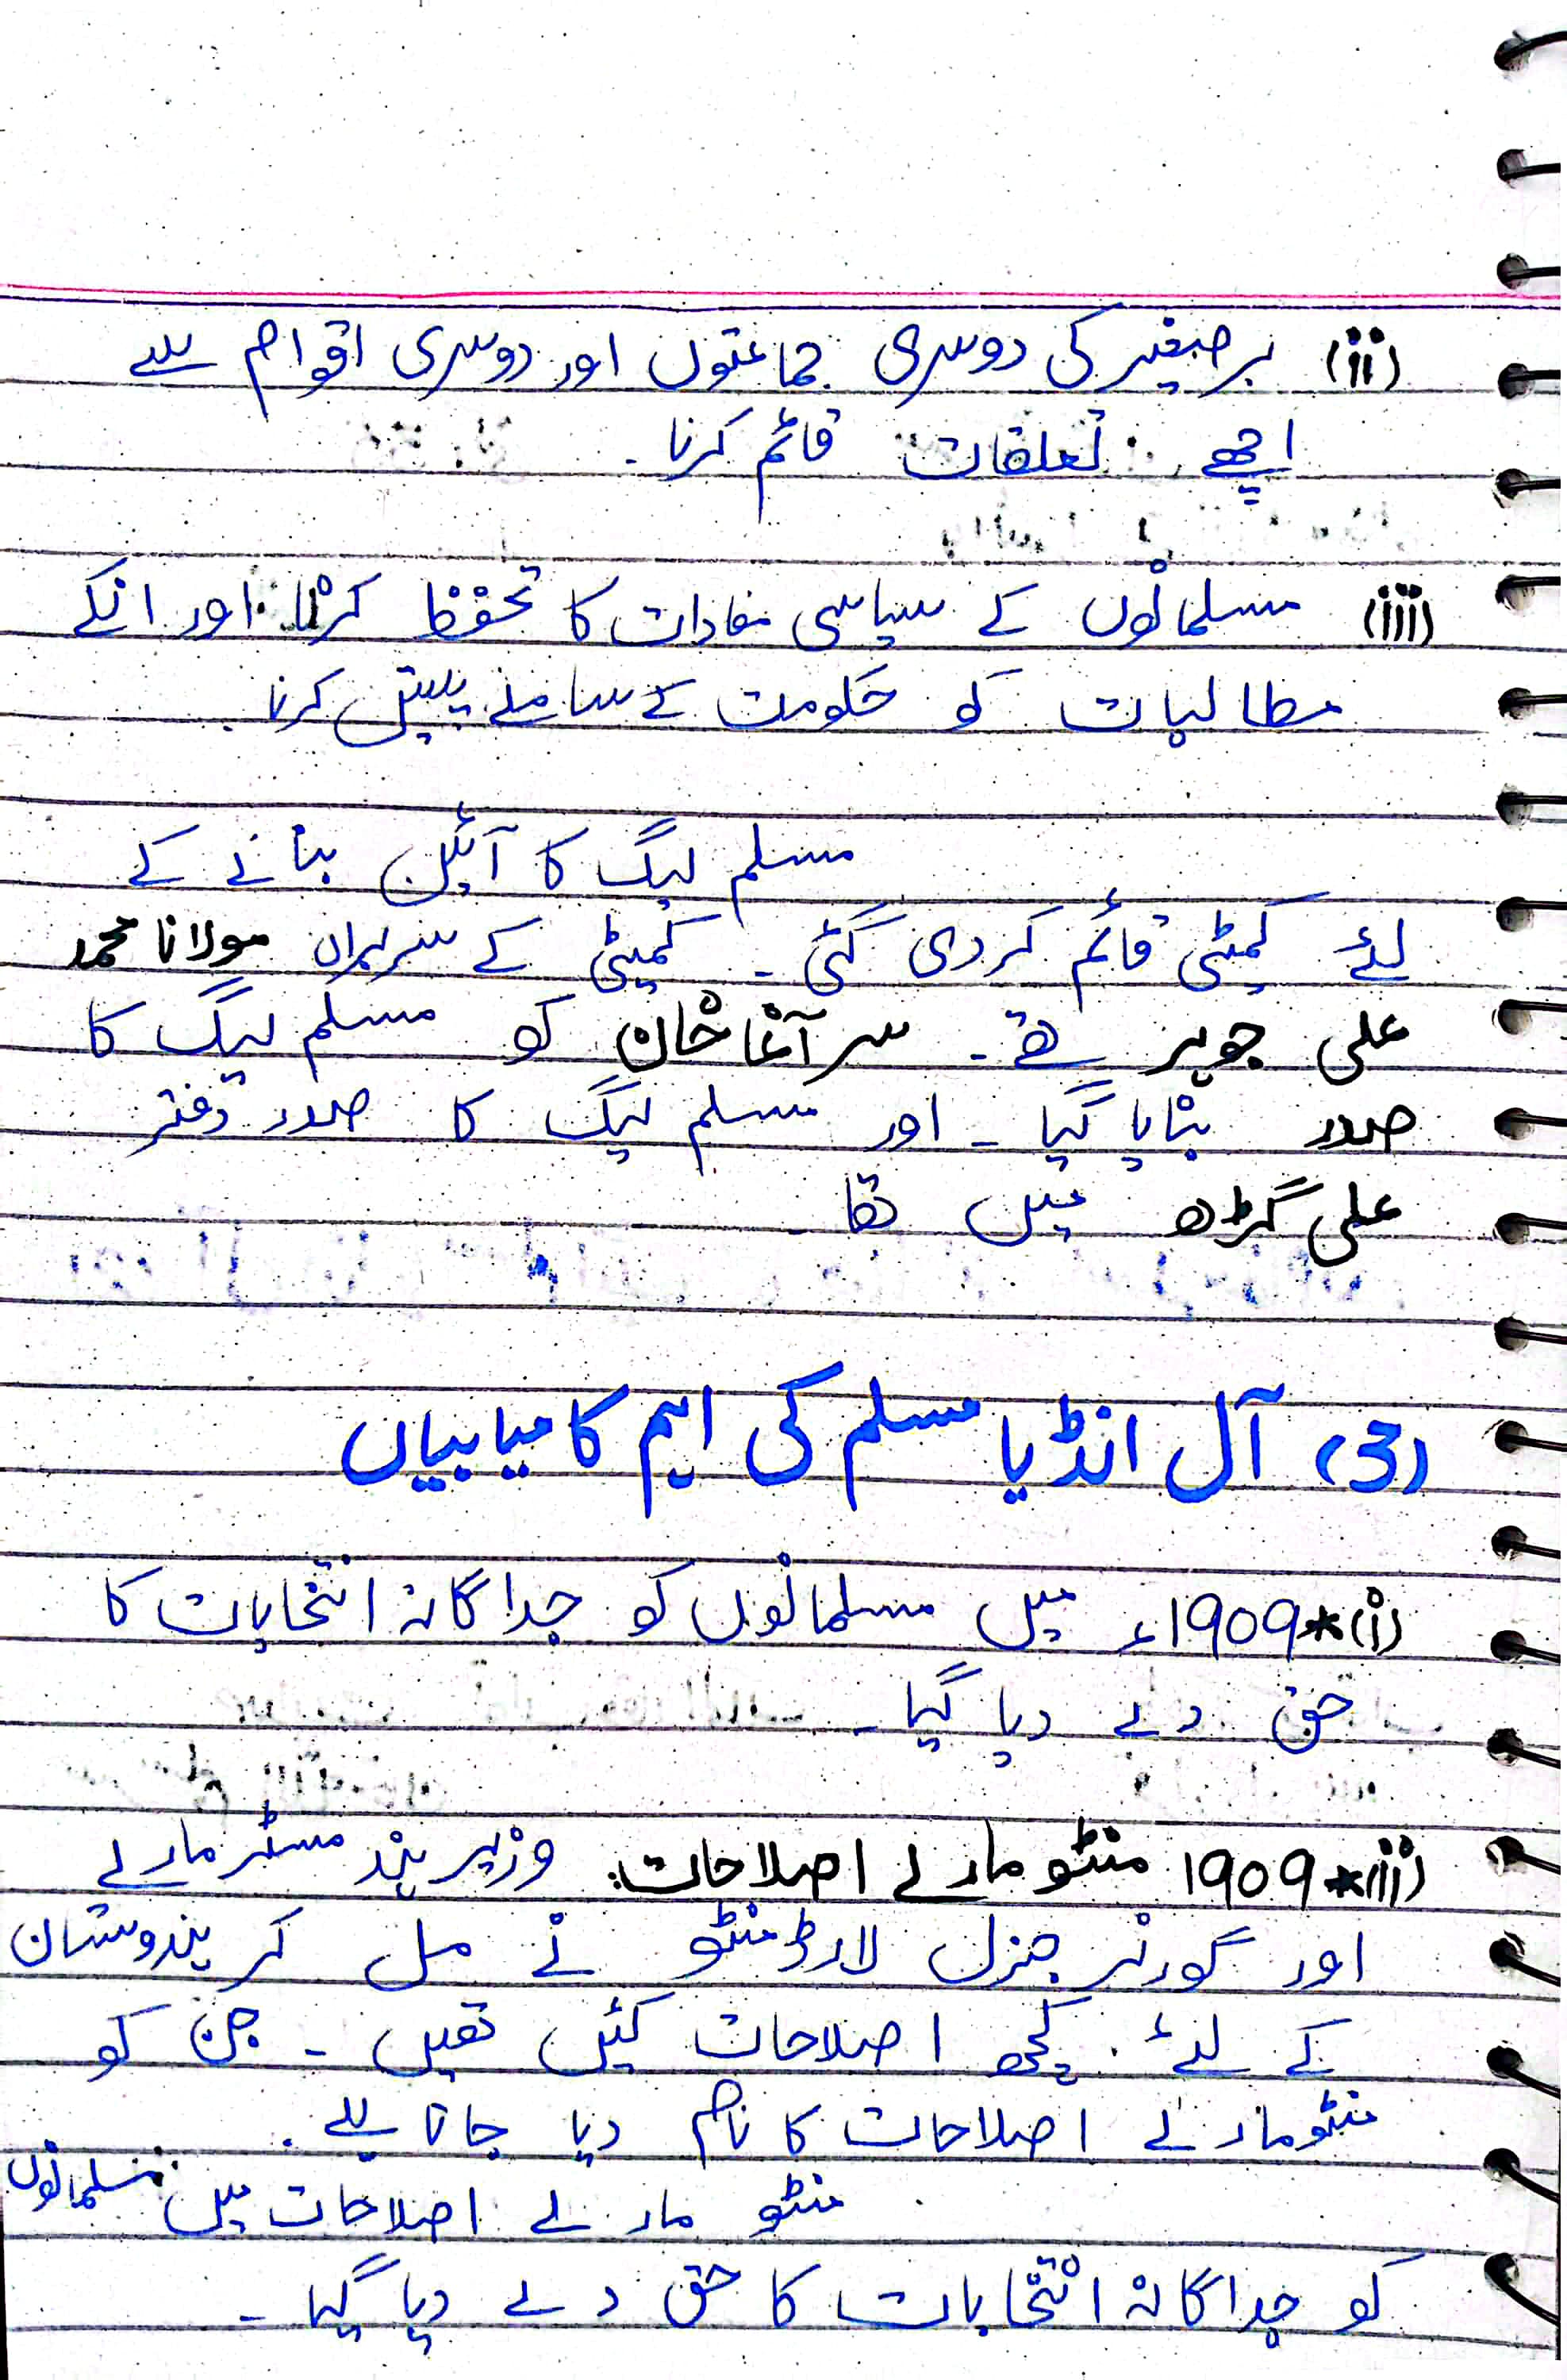 (ii) برصغیر کی دوسری جماعتوں اور دوسری اقوام سے
اچھے تعلقات قائم کرنا۔
(iii) مسلمانوں کے سیاسی مفادات کا تحفظ کرنا اور انکے
مطالبات کو حکومت کے سامنے پیش کرنا۔
مسلم لیگ کا آئین بنانے کے
لئے کمیٹی قائم کر دی گئی۔ کمیٹی کے سربراں مولانا محمد
علی جوہر تھے۔ سر آغا خان کو مسلم لیگ کا
صدر بنایا گیا۔ اور مسلم لیگ کا صدر دفتر
علی گڑھ میں تھا
(3) آل انڈیا مسلم کی اہم کامیابیاں
(i)* 1909ء میں مسلمانوں کو جداگانہ انتخابات کا
حق دے دیا گیا۔
(ii)* 1909 منٹو مارلے اصلاحات: وزیر ہند مسٹر مارلے
اور گورنر جنرل لارڈ منٹو نے مل کر ہندوستان
کے لئے کچھ اصلاحات کیں تھیں۔ جن کو
منٹو مارلے اصلاحات کا نام دیا جاتا ہے۔
منٹو مارلے اصلاحات میں مسلمانوں
کو جداگانہ انتخابات کا حق دے دیا گیا۔